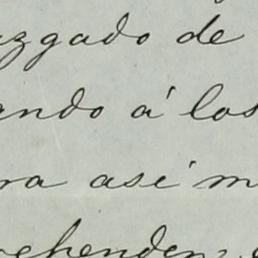 uzgado de
ando á los
ra así m
rehenden